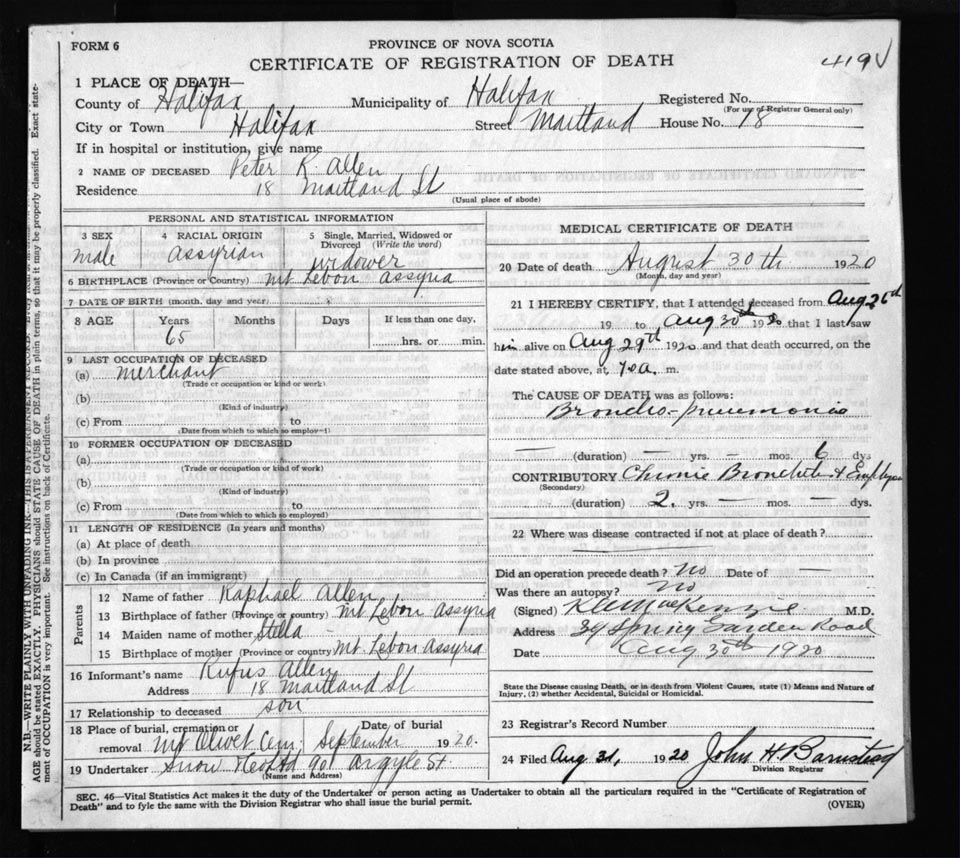 FORM 6
PROVINCE OF NOVA SCOTIA
CERTIFICATE OF REGISTRATION OF DEATH
419
1 PLACE OF DEATH—
County of Halifax Municipality of Halifax Registered No.
(For use of Registrar General only)
City or Town Halifax Street Maitland House No. 18
If in hospital or institution, give name
2 NAME OF DECEASED Peter R. Allen
Residence 18 Maitland St
(Usual place of abode)
PERSONAL AND STATISTICAL INFORMATION
3 SEX 4 RACIAL ORIGIN 5 Single, Married, Widowed or Divorced (Write the word)
male Assyrian widower
6 BIRTHPLACE (Province or Country) Mt Lebon Assyria
7 DATE OF BIRTH (month, day and year)
8 AGE Years Months Days If less than one day,
65 hrs. or min.
9 LAST OCCUPATION OF DECEASED
(a) merchant
(Trade or occupation or kind or work)
(b)
(Kind of industry)
(c) From to
(Date from which to which so employ—)
10 FORMER OCCUPATION OF DECEASED
(a)
(Trade or occupation or kind of work)
(b)
(Kind of industry)
(c) From to
(Date from which to which so employed)
11 LENGTH OF RESIDENCE (In years and months)
(a) At place of death
(b) In province
(c) In Canada (if an immigrant)
Parents
12 Name of father Raphael Allen
13 Birthplace of father (Province or country) Mt Lebon Assyria
14 Maiden name of mother Stella —
15 Birthplace of mother (Province or country) Mt. Lebon Assyria
16 Informant's name Rufus Allen
Address 18 Maitland St
17 Relationship to deceased son
18 Place of burial, cremation or removal Mt Olivet Cem; Date of burial September 1920.
19 Undertaker Snow & Co Ltd 90 Argyle St.
(Name and Address)
MEDICAL CERTIFICATE OF DEATH
20 Date of death August 30th 1920
(Month, day and year)
21 I HEREBY CERTIFY, that I attended deceased from Aug 26th
19 to Aug 30th 1920 that I last saw
him alive on Aug 29th 1920 and that death occurred, on the
date stated above, at a. m.
The CAUSE OF DEATH was as follows:
Broncho-pneumonia
(duration) — yrs. — mos. 6 dys
CONTRIBUTORY Chronic Bronchitis &
(Secondary)
(duration) 2 yrs. — mos. — dys.
22 Where was disease contracted if not at place of death?
Did an operation precede death? No Date of —
Was there an autopsy? No
(Signed) MacKenzie M.D.
Address 39 Spring Garden Road
Date Aug 30th 1920
State the Disease causing Death, or in death from Violent Causes, state (1) Means and Nature of
Injury, (2) whether Accidental, Suicidal or Homicidal.
23 Registrar's Record Number
24 Filed Aug 31, 1920 John H Barnstead
Division Registrar
SEC. 46—Vital Statistics Act makes it the duty of the Undertaker or person acting as Undertaker to obtain all the particulars required in the "Certificate of Registration of
Death" and to fyle the same with the Division Registrar who shall issue the burial permit.
(OVER)
N.B.—WRITE PLAINLY WITH UNFADING INK—THIS IS A PERMANENT RECORD.
AGE should be stated EXACTLY. PHYSICIANS should STATE CAUSE OF DEATH in plain terms, so that it may be properly classified. Exact state-
ment of OCCUPATION is very important. See instructions on back of Certificate.